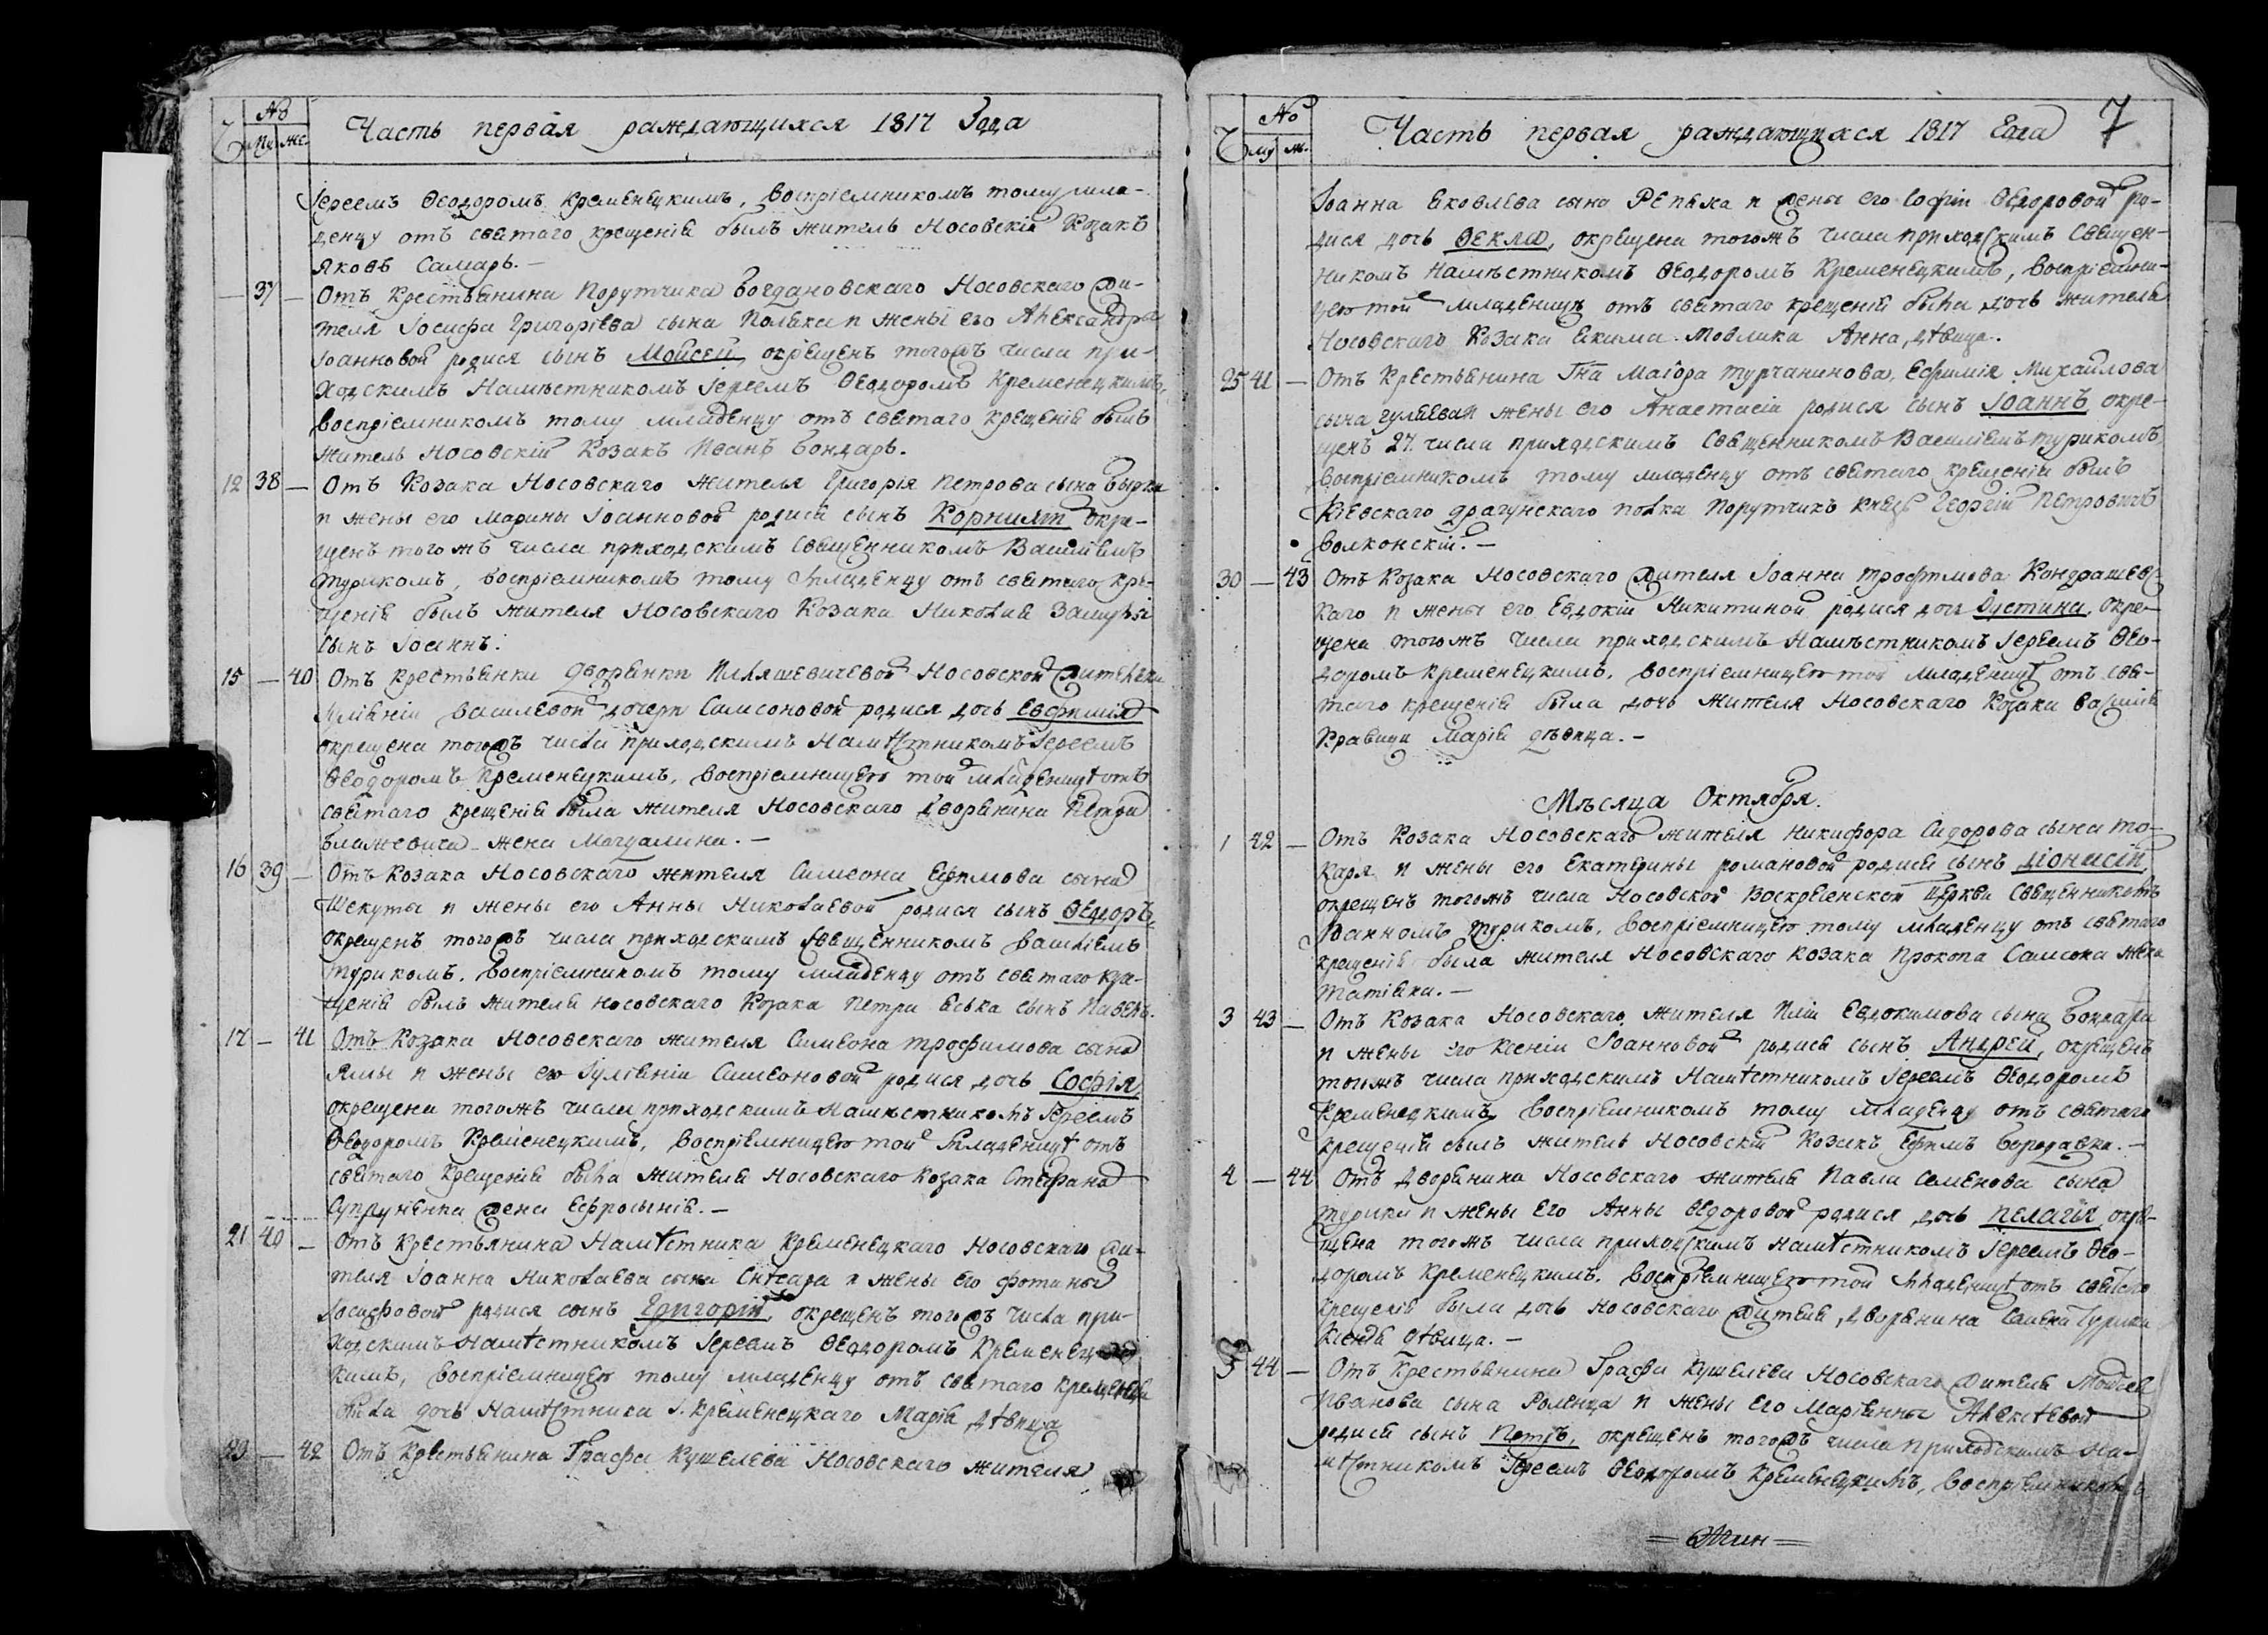 №
Му же. Часть первая раждающихся 1817 Года
Іереемъ Ѳеодоромъ Кременецкимъ, воспріемникомъ тому мла-
денцу отъ святаго крещенія былъ житель Носовскій Козакъ
Яковъ Самарь.—
— 37 — Отъ Крестьянина Порутчика Богдановскаго Носовскаго жи-
теля Іосифа Григоріева сына Поляка и жены его Александры
Іоанновой родися сынъ Моисей, окрещенъ тогожъ числа при-
ходскимъ Намѣстникомъ Іереемъ Ѳеодоромъ Кременецкимъ,
воспріемникомъ тому младенцу отъ святаго крещенія былъ
житель Носовскій Козакъ Иванъ Бондарь.
12 38 — Отъ Козака Носовскаго жителя Григорія Петрова сына
и жены его Марины Іоанновой родися сынъ Корнилій окре-
щенъ тогожъ числа приходскимъ Священникомъ Василіемъ
Турикомъ, воспріемникомъ тому младенцу отъ святаго кре-
щенія былъ жителя Носовскаго Козака Николая
сынъ Іоаннъ.
15 — 40 Отъ крестьянки Дворянки Илляшевичевой Носовской жителки
Василевой дочери Самсоновой родися дочь Евфимія
окрещена тогожъ числа приходскимъ Намѣстникомъ Іереемъ
Ѳеодоромъ Кременецкимъ, воспріемницею той младеницѣ отъ
святаго крещенія была жителя Носовскаго Дворянина Петра
Блажевича жена Магдалина.—
16 39 — Отъ Козака Носовскаго жителя Симеона Ефимова сына
Шекуты и жены его Анны Николаевой родися сынъ Ѳедоръ,
окрещенъ тогожъ числа приходскимъ священникомъ Василіемъ
Турикомъ. воспріемникомъ тому младенцу отъ святаго кре-
щенія былъ жителя Носовскаго Козака Петра Еська сынъ Павелъ.
17 — 41 Отъ Козака Носовскаго жителя Симеона Трофимова сына
Ямы и жены его Іуліяніи Симеоновой родися дочь Софія,
окрещена тогожъ числа приходскимъ Намѣстникомъ Іереемъ
Ѳеодоромъ Кременецкимъ, воспріемницею той младеницѣ отъ
святаго крещенія была жителя Носовскаго Козака Стефана
Супруненка жена Ефросинія.—
21 40 — Отъ Крестьянина Намѣстника Кременецкаго Носовскаго жи-
теля Іоанна Николаева сына Снѣсаря и жены его Фотины
Іосифовой родися сынъ Григорій, окрещенъ тогожъ числа при-
ходскимъ Намѣстникомъ Іереемъ Ѳеодоромъ Кременец-
кимъ, воспріемницею тому младенцу отъ святаго крещенія
была дочь Намѣстника І. Кременецкаго Марія дѣвица
— 42 Отъ Крестьянина Графа Кушелева Носовскаго жителя
№
му ж. Часть первая раждающихся 1817 Года 7
Іоанна Яковлева сына Репяха и жены его Софіи Ѳедоровой ро-
дися дочь Ѳекла, окрещена тогожъ числа приходскимъ Священ-
никомъ Намѣстникомъ Ѳеодоромъ Кременецкимъ, воспріемни-
цею той младеницѣ отъ святаго крещенія была дочь жителя
Носовскаго Козака Екима Мовлика Анна, дѣвица.
25 41 — Отъ Крестьянина Гна Маіора Турчанинова, Ефимія Михайлова
сына Гуляева и жены его Анастасіи родися сынъ Іоаннъ окре-
щенъ 27. числа приходскимъ Священникомъ Василіемъ Турикомъ,
воспріемникомъ тому младенцу отъ святаго крещенія былъ
Кіевскаго драгунскаго полка Порутчикъ Князь Георгій Петровичъ
Волконскій.—
30 — 43 Отъ Козака Носовскаго жителя Іоанна Трофимова Кондрашевс-
каго и жены его Евдокіи Никитиной родися дочь Іустина, окре-
щена тогожъ числа приходскимъ Намѣстникомъ Іереемъ Ѳео-
доромъ Кременецкимъ. воспріемницею той младеницѣ отъ свя-
таго крещенія была дочь жителя Носовскаго Козака Василія
Кравца Марія дѣвица.—
Мѣсяца Октября.
1 42 — Отъ Козака Носовскаго жителя Никифора Сидорова сына То-
каря и жены его Екатерины Романовой родися сынъ Діонисій,
окрещенъ тогожъ числа Носовской Воскресенской Церкви Священникомъ
Іоанномъ Турикомъ. воспріемницею тому младенцу отъ святаго
крещенія была жителя Носовскаго Козака Прокопа Самсона жена
Татіяна.—
3 43 — Отъ Козака Носовскаго жителя Иліи Евдокимова сына Бондаря
и жены его Ксеніи Іоанновой родися сынъ Андрей, окрещенъ
тогожъ числа приходскимъ Намѣстникомъ Іереемъ Ѳеодоромъ
Кременецкимъ, воспріемникомъ тому младенцу отъ святаго
крещенія былъ житель Носовскій Козакъ Ефимъ Бородавка.—
4 — 44 Отъ Дворянина Носовскаго жителя Павла Семенова сына
Турика и жены его Анны Ѳедоровой родися дочь Пелагія, окре-
щена тогожъ числа приходскимъ Намѣстникомъ Іереемъ Ѳео-
доромъ Кременецкимъ. воспріемницею той младеницѣ отъ святаго
крещенія была дочь Носовскаго жителя, дворянина Семена Турика
дѣвица.—
5 44 — Отъ Крестьянина Графа Кушелева Носовскаго жителя Моисея
Иванова сына и жены его Маріянны Алексѣевой
родися сынъ Петръ, окрещенъ тогожъ числа приходскимъ На-
мѣстникомъ Іереемъ Ѳеодоромъ Кременецкимъ, воспріемникомъ